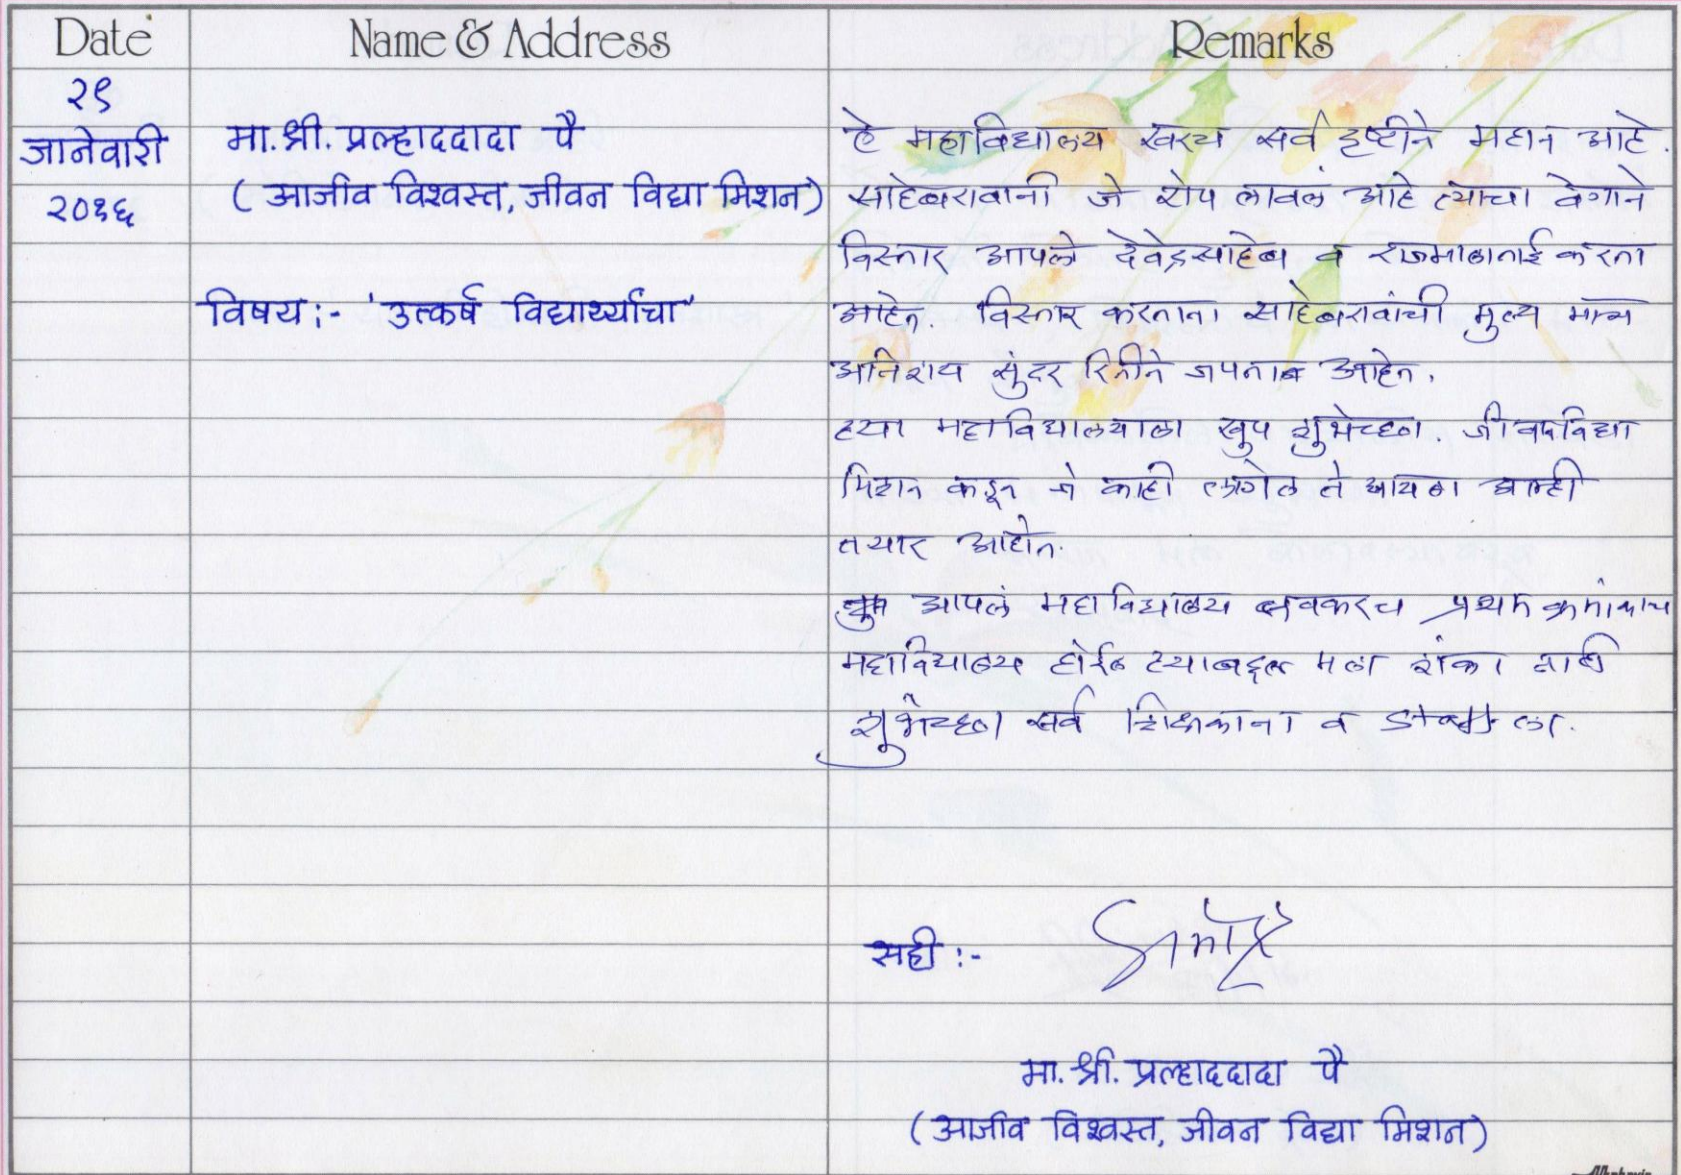 Date
Name & Address
Remarks
२९
जानेवारी
२०१६
मा.श्री. प्रल्हाददादा पै
( आजीव विश्वस्त, जीवन विद्या मिशन )
विषय :- 'उत्कर्ष विद्यार्थ्यांचा'
हे महाविद्यालय खरच सर्व दृष्टीने महान आहे.
साहेबरावानी जे रोप लावलं आहे त्याचा वेगाने
विस्तार आपले देवेंद्रसाहेब व राजमाळाताई करता
आहेत. विस्तार करताना साहेबरावांची मुल्य मात्र
अतिशय सुंदर रितीने जपतात आहेत.
ह्या महाविद्यालयाला खुप शुभेच्छा. जीवनविद्या
मिशन कडून जे काही लागेल ते द्यायला आम्ही
तयार आहोत.
आपलं महाविद्यालय लवकरच प्रथम क्रमांकाच
महाविद्यालय होईल त्याबद्दल मला शंका नाही
शुभेच्छा सर्व शिक्षकाना व staff ला.
सही :-
मा. श्री. प्रल्हाददादा पै
( आजीव विश्वस्त, जीवन विद्या मिशन )